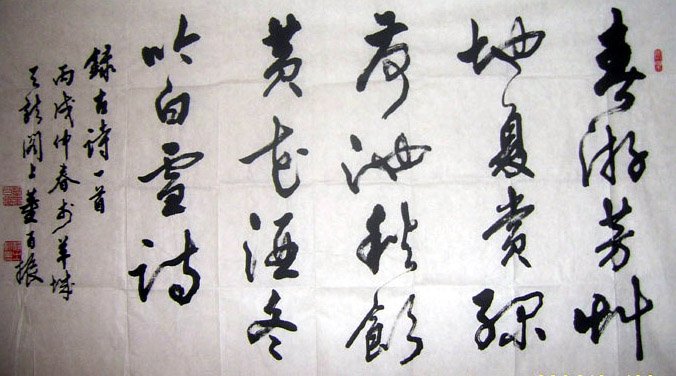 春游芳草
地夏赏绿
荷池秋飲
黄花酒冬
吟白雪詩
録古诗一首
丙戌仲春于羊城
天龍阁上董百振